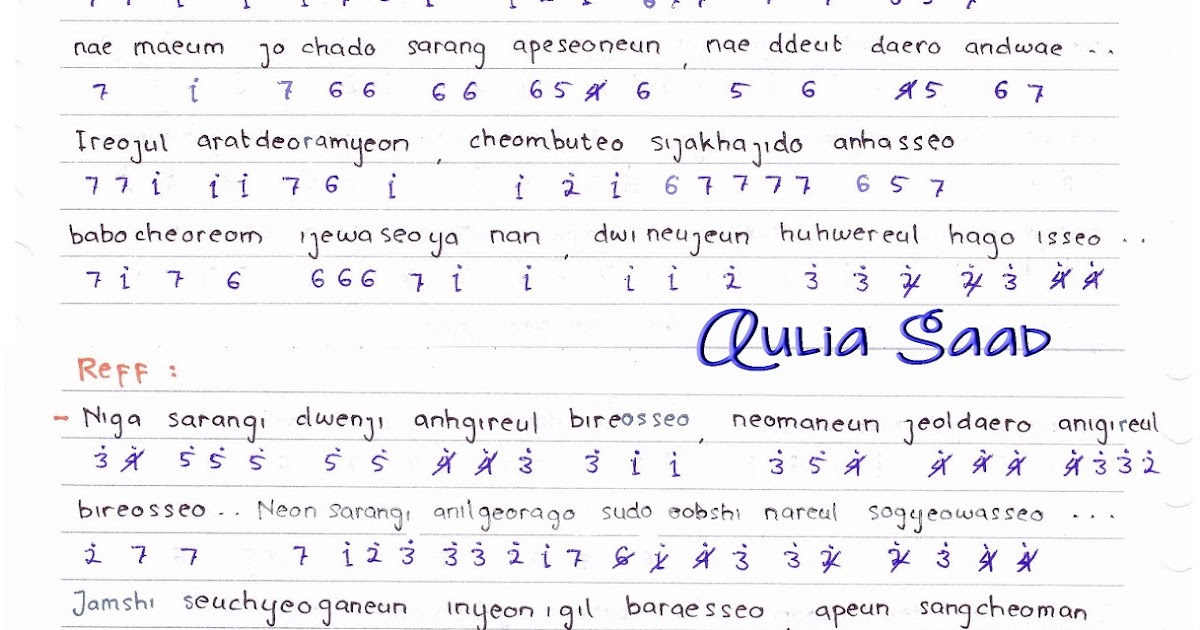 nae maeum jo chado sarang apeseoneun, nae ddeut daero andwae ..
7 i 7 6 6 6 6 6 5 4 6 5 6 4 5 6 7
Ireojul aratdeoramyeon, cheombuteo sijakhajido anhasseo
7 7 i i i 7 6 i i 2 i 6 7 7 7 7 6 5 7
babocheoreom ijewaseoya nan, dwineujeun huhwereul hago isseo ..
7 i 7 6 6 6 6 7 i i i i 2 3 3 2 2 3 4 4
Qulia Saad
Reff :
- Niga sarangi dwenji anhgireul bireosseo, neomaneun jeoldaero anigireul
3 4 5 5 5 5 5 4 4 3 3 i i 3 5 4 4 4 4 4 3 3 2
bireosseo .. Neon sarangi anilgeorago sudo eobshi nareul sogyeowasseo ...
2 7 7 7 i 2 3 3 3 2 i 7 6 i 4 3 3 2 2 3 4 4
Jamshi seuchyeoganeun inyeonigil baraesseo, apeun sangcheoman